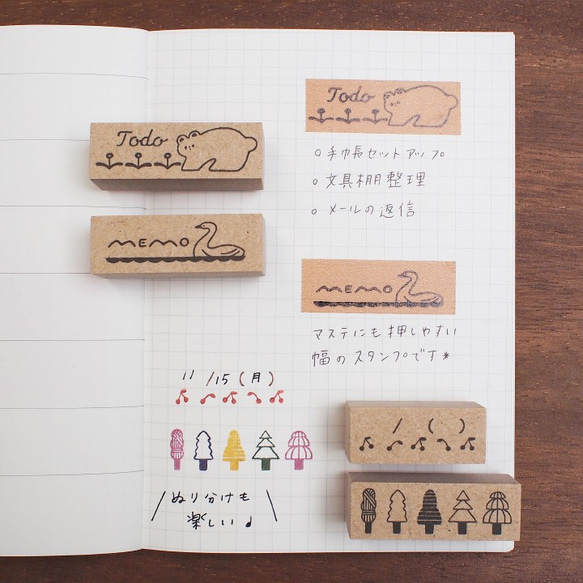 Todo
Todo
○ 手帳セットアップ
○ 文具棚整理
○ メールの返信
MEMO
MEMO
マステにも押しやすい
幅のスタンプです*
11/15(月)
/ ( )
\ぬり分けも
楽しい♩/